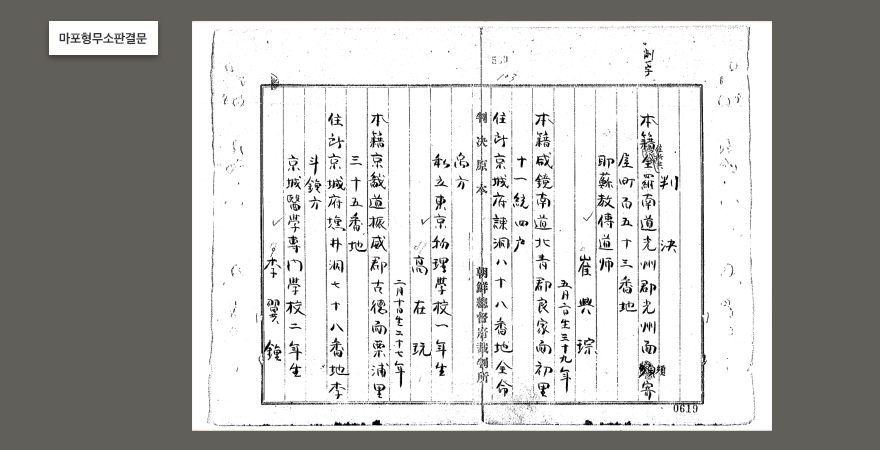 마포형무소판결문
判決
本籍全羅南道光州郡光州面
屋町百五十三番地
耶蘇教傳道師
崔興琮
五月二日生三十九年
本籍咸鏡南道北青郡良家面初里
十一統四戶
住所京城府諫洞八十八番地金命
判決原本
朝鮮總督府裁判所
高方
私立東京物理學校一年生
高在玩
二月十日生二十七年
本籍京畿道振威郡古德面栗浦里
三十五番地
住所京城府塩井洞七十八番地李
斗鍾方
京城醫學專門學校二年生
李翼鍾
0619